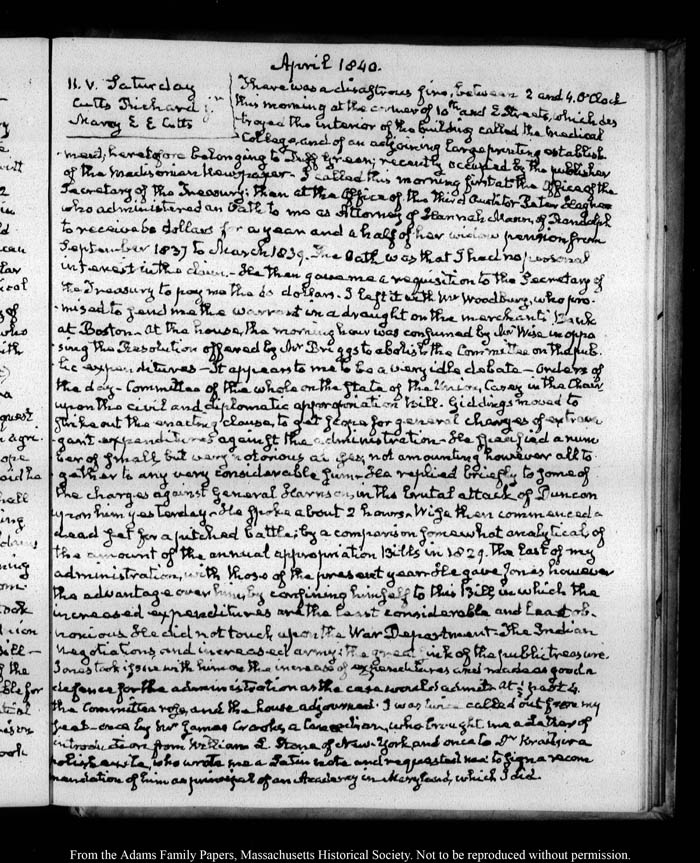 April 1840.
11. V. Saturday
Cutts Richard jr.
Marcy E E Cutts
There was a disastrous fire, between 2 and 4. O'Clock
this morning at the corner of 10th and E Streets, which des
troyed the interior of the building called the Medical
College, and of an adjoining large printing establish
ment, heretofore belonging to Duff Green; recently occupied by the publisher
of the Madisonian Newspaper - I called this morning first at the Office of the
Secretary of the Treasury; then at the Office of the third Auditor Peter Hagner
who administered an Oath to me as Attorney of Hannah Mann, of Randolph
to receive dollars for a year and a half of her widow pension from
September 1837 to March 1839. The Oath was that I had no personal
interest in the claim. - He then gave me a requisition to the Secretary of
the Treasury to pay me the dollars. I left it with Mr Woodbury, who pro-
mised to send me the warrant in a draught on the merchants Bank
at Boston - At the house, the morning hour was consumed by Mr Wise in oppo
sing the Resolution offered by Mr Briggs to abolish the Committee on the pub-
lic expenditures - It appears to me to be a very idle debate - Orders of
the day - Committee of the whole on the state of the Union, Casey in the Chair
upon the civil and diplomatic appropriation Bill. Giddings moved to
strike out the enacting clause, to get scope for general charges of extrava
gant expenditures against the administration - He specified a num
ber of small but very notorious not amounting however all to-
gether to any very considerable sum - He replied briefly to some of
the charges against General Harrison, in the brutal attack of Duncan
upon him yesterday - He spoke about 2 hours. Wise then commenced a
dead set for a pitched battle; by a comparison somewhat analytical, of
the amount of the annual appropriation Bills in 1829. the last of my
administration, with those of the present year - He gave Jones however
the advantage over him, by confining himself to this Bill in which the
increased expenditures are the least considerable and least ob-
noxious. He did not touch upon the War Department - The Indian
negotiations and increased army; the great of the public treasure.
Jones took issue with him on the increase of expenditures and made as good a
defence for the administration as the case would admit. At ½ past 4.
the Committee rose, and the house adjourned. I was twice called out from my
seat - once by Mr James Crooks, a Canadian, who brought me a letter of
introduction from William L. Stone of New-York and once to Dr Kraitsir a
Polish exile, who wrote me a Latin note and requested me to sign a recom
mendation of him as principal of an Academy in Maryland, which I did
From the Adams Family Papers, Massachusetts Historical Society. Not to be reproduced without permission.